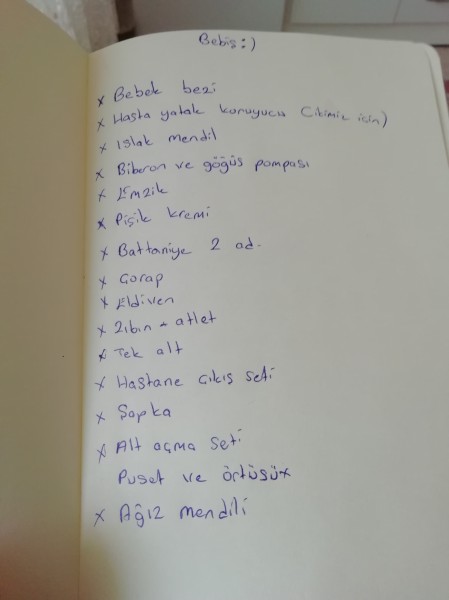 Bebiş :)
x Bebek bezi
x Hasta yatak koruyucu (ikimiz için)
x Islak mendil
x Biberon ve göğüs pompası
x Emzik
x Pişik kremi
x Battaniye 2 ad.
x Çorap
x Eldiven
x Zıbın - atlet
x Tek alt
x Hastane çıkış seti
x Şapka
x Alt açma seti
Puset ve örtüsü x
x Ağız mendili